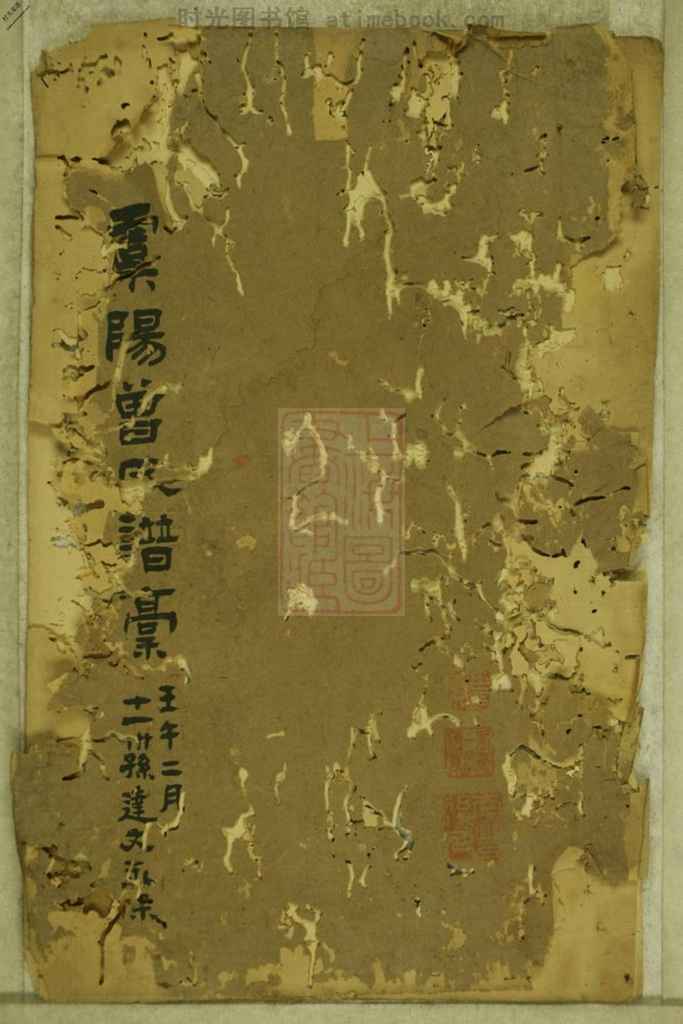 时光图书馆 atimebook.com
虞陽曾氏譜稾
壬午二月
十一世孫達文
上海圖